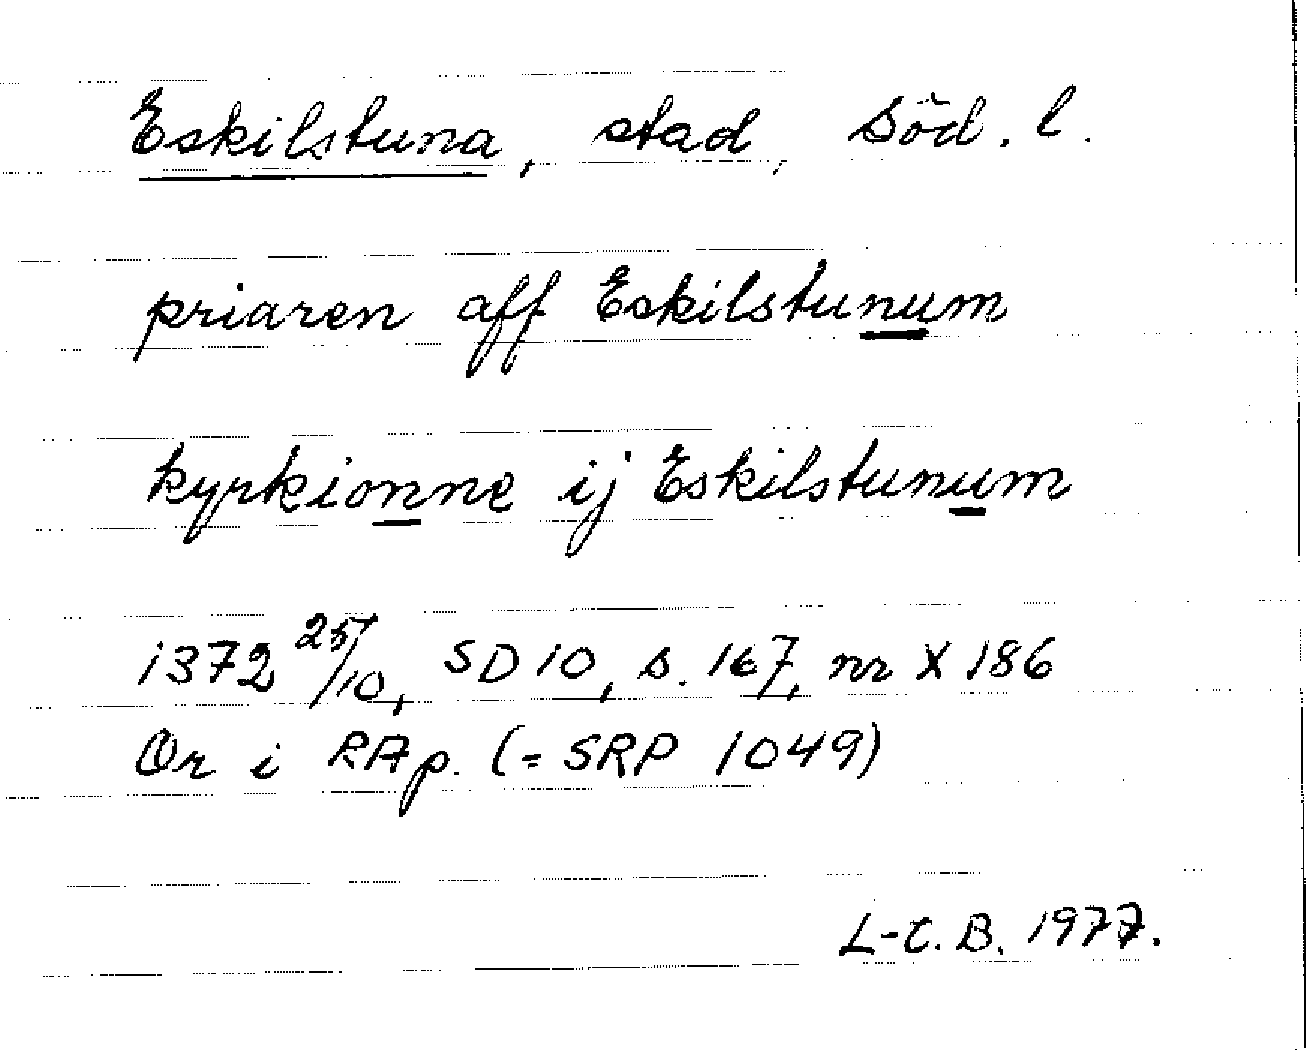 Eskilstuna, stad, Söd. l.
priaren aff Eskilstunum
kyrkionne ij Eskilstunum
1372 25/10, SD 10, s. 167, nr X 186
Or i RAp. (= SRP 1049)
L-C. B. 1977.